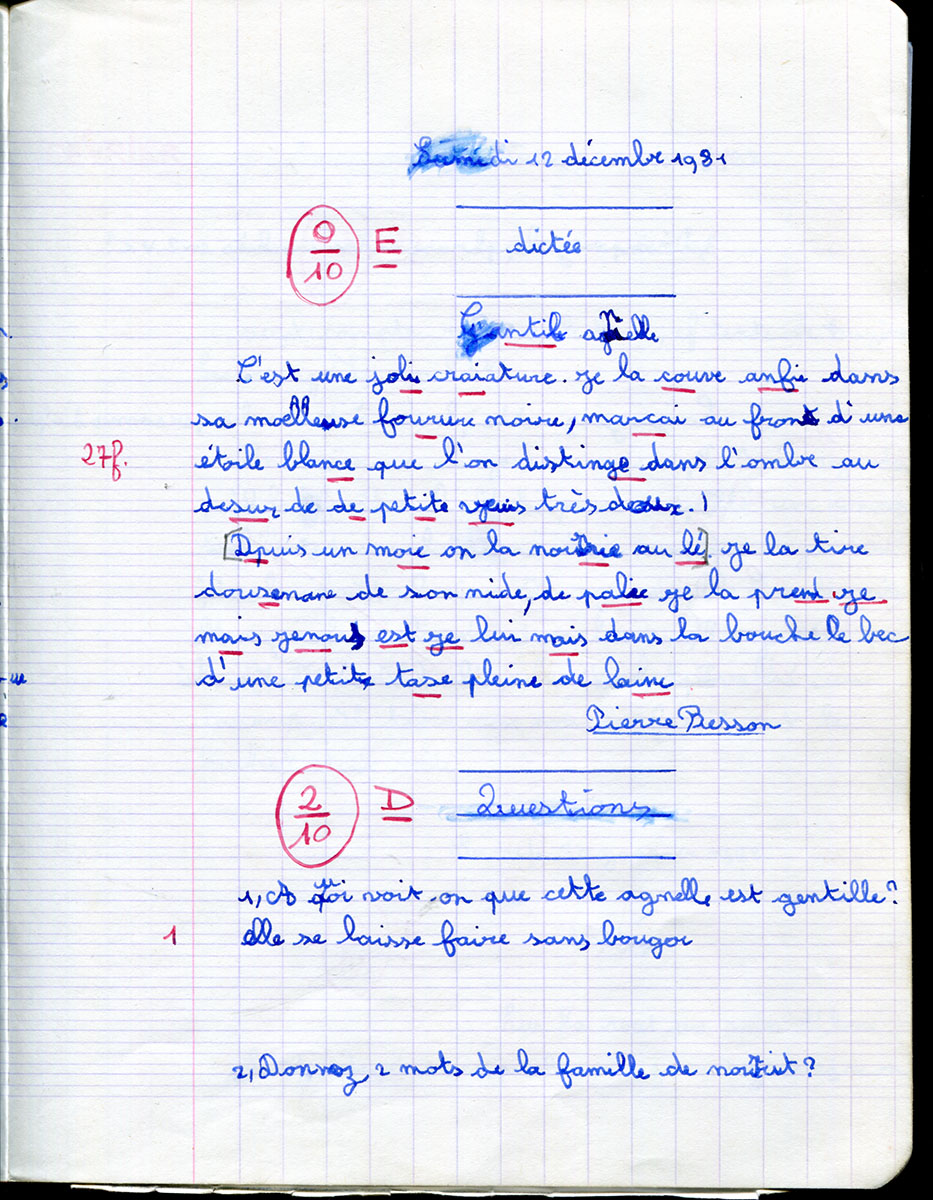 Samedi 12 décembre 1981
0/10 E
dictée
Gantile agnielle
C'est une joli craiature. ye la couve anfie dans
sa moelleuse fourure noire, marcai au front d'une
27f. étoile blance que l'on distinge dans l'ombre au
desur de de petite yeuis très doux.)
[Dpuis un moie on la nourrie au lé]. ye la tire
dousemane de son nide, de palie ye la prend ye
mais yenous est ye lui mais dans la bouche le bec
d'une petite tase pleine de laine
Pierre Besson
2/10 D
Questions
1, A quoi voit-on que cette agnelle est gentille?
1 elle se laisse faire sans bouger
2, Donnez 2 mots de la famille de nourrit?